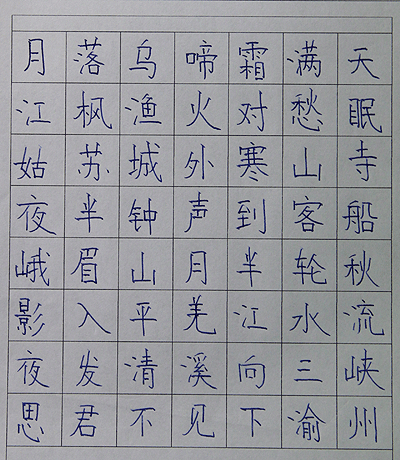 月落乌啼霜满天
江枫渔火对愁眠
姑苏城外寒山寺
夜半钟声到客船
峨眉山月半轮秋
影入平羌江水流
夜发清溪向三峡
思君不见下渝州